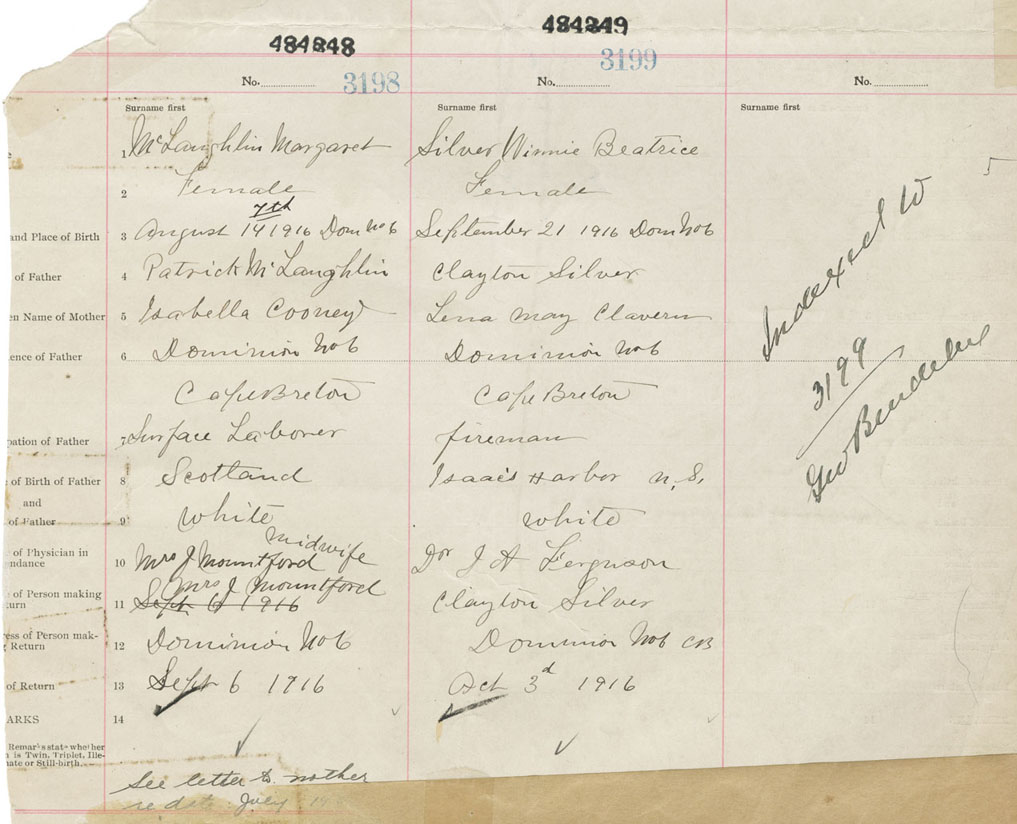 484248
484249
No. 3198
No. 3199
No.
Surname first
Surname first
Surname first
1 McLaughlin Margaret
Silver Winnie Beatrice
2 Female
Female
7th
and Place of Birth
3 August 14 1916 Dom No 6
September 21 1916 Dom No 6
of Father
4 Patrick McLaughlin
Clayton Silver
en Name of Mother
5 Isabella Cooney
Lena May Clavern
ence of Father
6 Dominion No 6
Dominion No 6
Cape Breton
Cape Breton
pation of Father
7 Surface Laborer
fireman
e of Birth of Father
8 Scotland
Isaacs Harbor N.S.
and
of Father
9 White
White
midwife
e of Physician in
ndance
10 Mrs J Mountford
Dor J A Ferguson
Mrs J Mountford
e of Person making
turn
11 Sept 6 1916
Clayton Silver
ress of Person mak-
g Return
12 Dominion No 6
Dominion No 6 CB
of Return
13 Sept 6 1916
Oct 3d 1916
ARKS
14
Remarks state whether
n is Twin, Triplet, Ille-
mate or Still-birth.
See letter to mother
re date July
Indexed W
3199
Geo